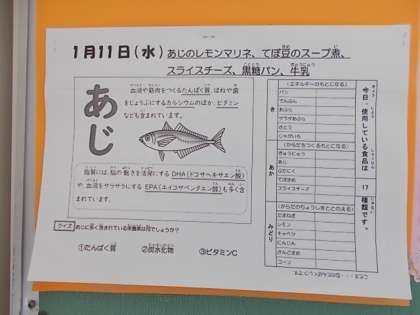 1月11日(水) あじのレモンマリネ、てぼ豆のスープ煮、
スライスチーズ、黒糖パン、牛乳
あじ
血液や筋肉をつくるたんぱく質、ほねや歯
をじょうぶにするカルシウムのほか、ビタミン
なども含まれています。
脂質には、脳の働きを活発にするDHA(ドコサヘキサエン酸)
や、血液をサラサラにするEPA(エイコサペンタエン酸)も多く含
まれています。
クイズ
あじに多く含まれている栄養素は何でしょうか?
①たんぱく質 ②炭水化物 ③ビタミンC
今日、使用している食品は 17 種類です。
き
(エネルギーのもとになる)
パン
でんぷん
あぶら
さとう
じゃがいも
あか
(からだをつくるもとになる)
ぎゅうにゅう
あじ
てぼまめ
スライスチーズ
みどり
(からだのちょうしをととのえる)
たまねぎ
レモン
キャベツ
にんじん
コーン